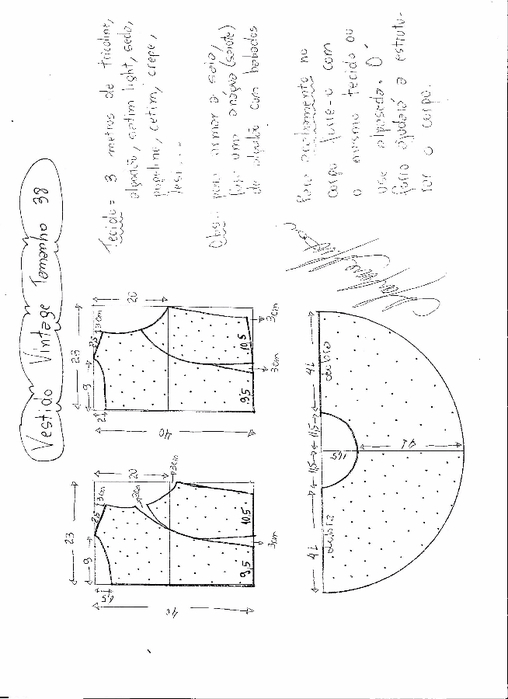 Vestido Vintage Tamanho 38
Tecido = 3 metros de tricoline,
algodão, cetim light, seda,
popeline, cetim, crepe,
Obs... para armar a saia,
faça uma anágua (saiote)
de algodão com babados
Para acabamento no
corpo forre-o com
o mesmo tecido ou
use alpaseda. O
forro ajudará a estrutu-
rar o corpo.
23
9
20
3cm
2
40
10.5
9.5
3cm
3cm
23
9
20
3cm
3cm
40
10.5
9.5
3cm
71
11,5
11,5
71
dobra
dobra
71
11,5